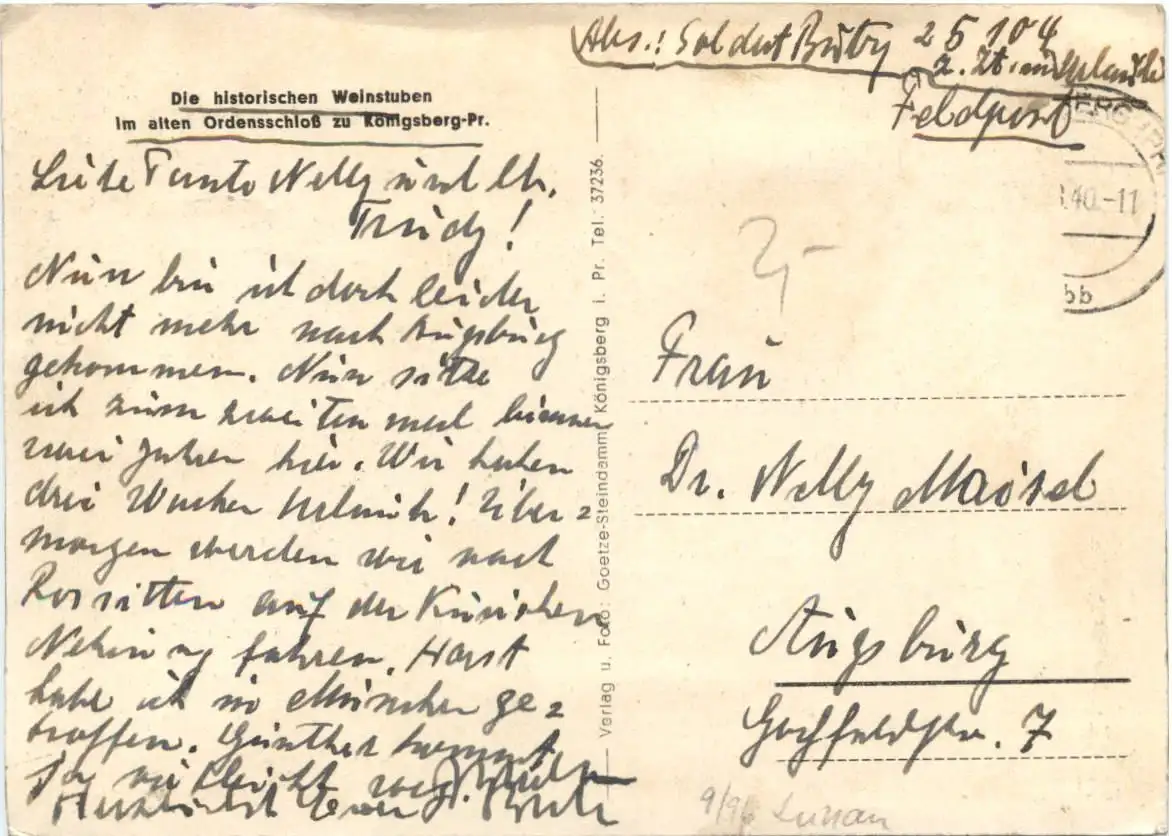 Abs.: Soldat 25104
z. Zt. in
Feldpost
Die historischen Weinstuben
im alten Ordensschloß zu Königsberg-Pr.
Liebe Tante Nelly und lb.
Trudy!
Nun bin ich doch leider
nicht mehr nach Augsburg
gekommen. Nun sitze
ich zum zweiten mal binnen
zwei Jahren hier. Wir haben
drei Wochen Urlaub! Über=
morgen werden wir nach
Rossitten auf der Kurischen
Nehrung fahren. Horst
habe ich in München ge=
troffen. Günther kommt
ja vielleicht
Herzlichst Euer
Verlag u. Foto: Goetze-Steindamm Königsberg i. Pr. Tel. 37236.
.40.-11
bb
Frau
Dr. Nelly Maisel
Augsburg
Hochfeldstr. 7
9/96